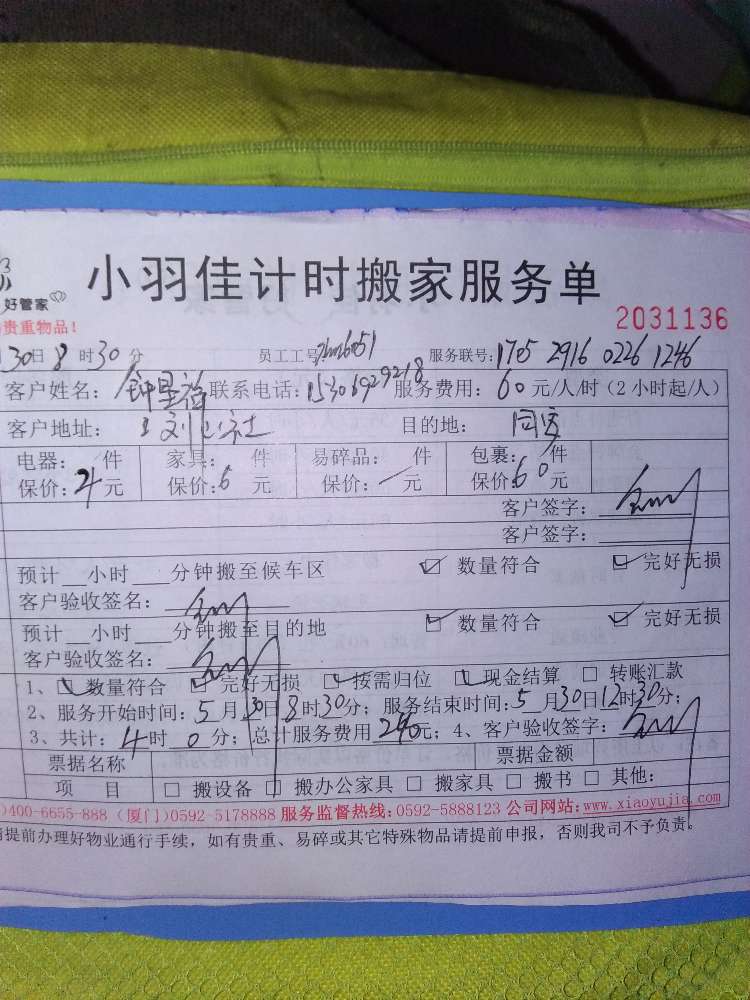 好管家
小羽佳计时搬家服务单
贵重物品！
2031136
30日8时30分 员工工号 服务联号：1705 2916 0226 1246
客户姓名： 联系电话：15306929218 服务费用：60元/人/时（2小时起/人）
客户地址： 目的地：同安
电器： 件 家具： 件 易碎品： 件 包裹： 件
保价：2元 保价：6元 保价： 元 保价：60元
客户签字：
客户签字：
预计 小时 分钟搬至候车区 ☑ 数量符合 ☑ 完好无损
客户验收签名：
预计 小时 分钟搬至目的地 ☑ 数量符合 ☑ 完好无损
客户验收签名：
1、☑ 数量符合 ☑ 完好无损 ☑ 按需归位 ☑ 现金结算 □ 转账汇款
2、服务开始时间：5月30日8时30分；服务结束时间：5月30日12时30分；
3、共计：4时0分；总计服务费用240元；4、客户验收签字：
票据名称 票据金额
项 目 □ 搬设备 □ 搬办公家具 □ 搬家具 □ 搬书 □ 其他：
)400-6655-888（厦门)0592-5178888 服务监督热线：0592-5888123 公司网站：www.xiaoyujia.com
提前办理好物业通行手续，如有贵重、易碎或其它特殊物品请提前申报，否则我司不予负责。